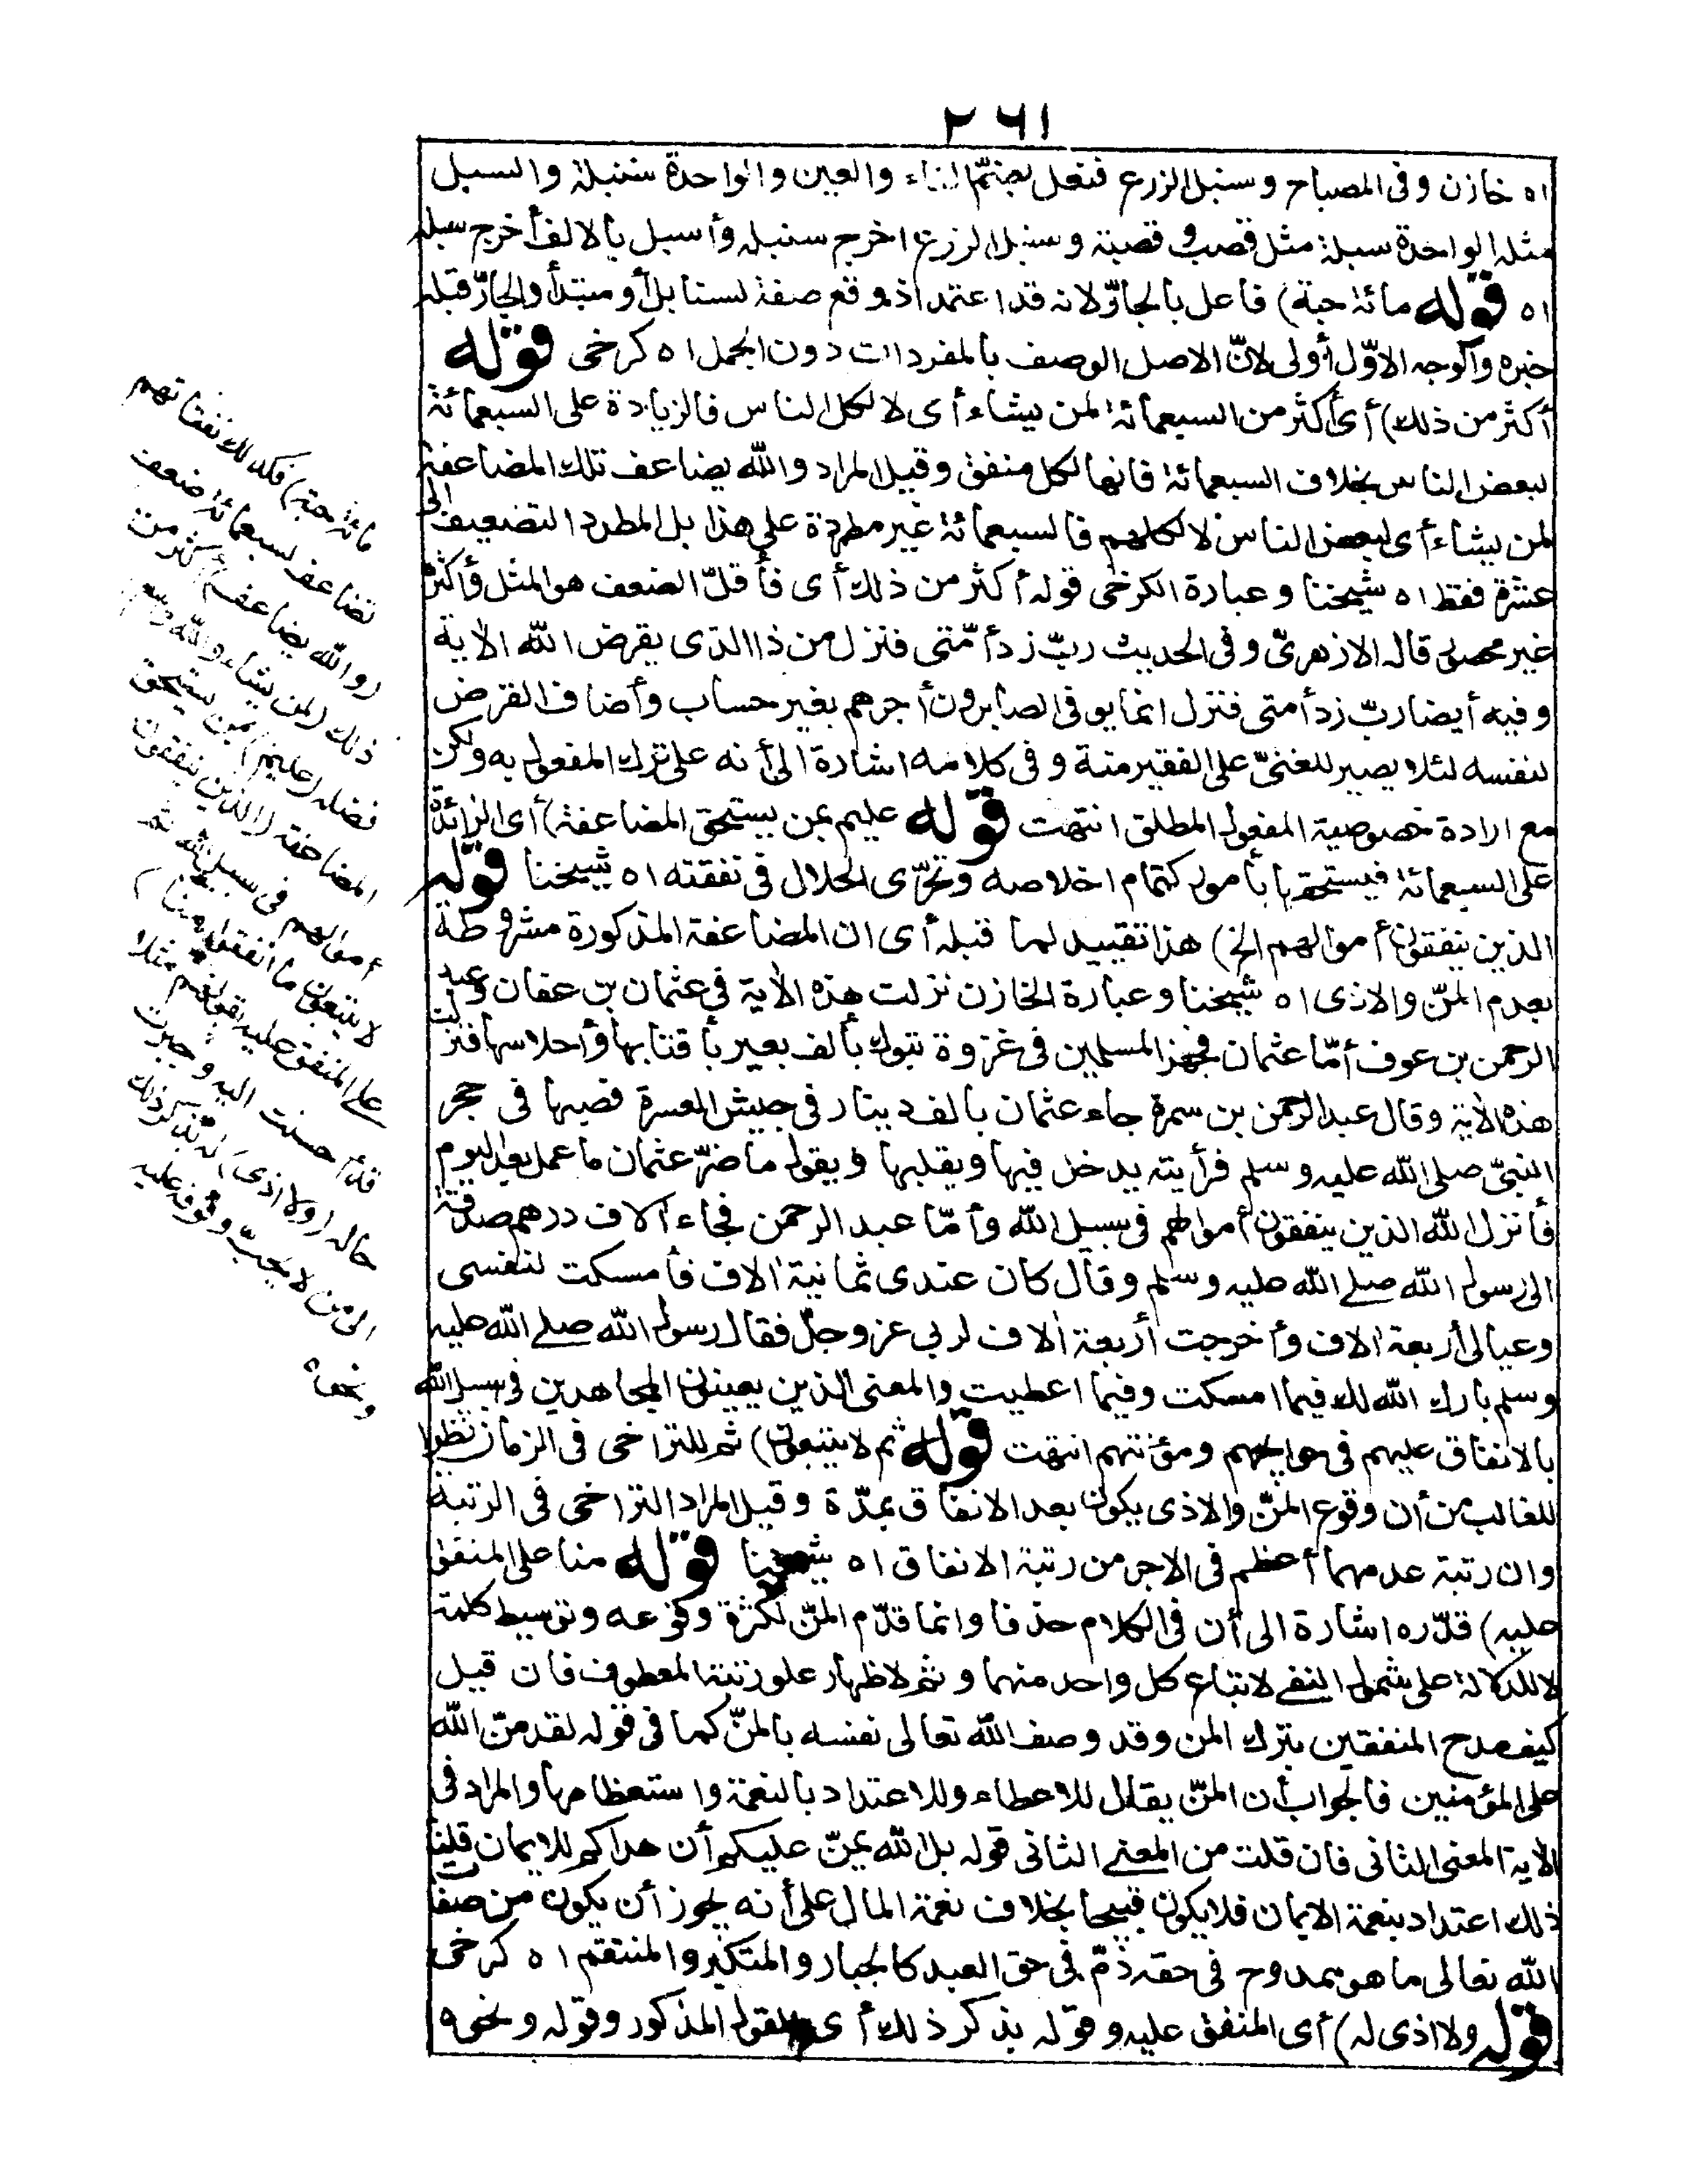 ٢٦١
اه خازن وفى المصباح وسنبل الزرع فنعل بضمّ الفاء والعين والواحدة سنبلة والسبل
مثله الواحدة سبلة مثل قصب وقصبة وسنبل الزرع اخرج سنبله وأسبل بالالف أخرج سبله
اه قوله مائة حبة) فاعل بالجارّ لانه قد اعتمد اذ وقع صفة لسنابل أو مبتدأ والجارّ قبله
خبره والوجه الاوّل أولى لانّ الاصل الوصف بالمفردات دون الجمل اه كرخى قوله
أكثر من ذلك) أى أكثر من السبعمائة لمن يشاء أى لا لكل الناس فالزيادة على السبعمائة
لبعض الناس بخلاف السبعمائة فانها لكل منفق وقيل المراد والله يضاعف تلك المضاعفة
لمن يشاء أى لبعض الناس لا لكلهم فالسبعمائة غير مطردة على هذا بل المطرد التضعيف الى
عشرة فقط اه شيخنا وعبارة الكرخى قوله أكثر من ذلك أى فأقلّ الضعف هو المثل وأكثره
غير محصور قاله الازهرىّ وفى الحديث ربّ زد أمّتى فنزل من ذا الذى يقرض الله الآية
وفيه أيضا ربّ زد أمتى فنزل انما يوفى الصابرون أجرهم بغير حساب وأضاف القرض
لنفسه لئلا يصير للغنىّ على الفقير منة وفى كلامه اشارة الى أنه على ترك المفعول به ولكن
مع ارادة خصوصية المفعول المطلق انتهت قوله عليم بمن يستحق المضاعفة) أى الزائدة
على السبعمائة فيستحقها بأمور كتمام اخلاصه وتحرّى الحلال فى نفقته اه شيخنا قوله
الذين ينفقون أموالهم الخ) هذا تقييد لما قبله أى ان المضاعفة المذكورة مشروطة
بعدم المنّ والاذى اه شيخنا وعبارة الخازن نزلت هذه الآية فى عثمان بن عفان وعبد
الرحمن بن عوف أمّا عثمان فجهز المسلمين فى غزوة تبوك بألف بعير بأقتابها وأحلاسها فنزلت
هذه الآية وقال عبد الرحمن بن سمرة جاء عثمان بالف دينار فى جيش العسرة فصبها فى حجر
النبىّ صلى الله عليه وسلم فرأيته يدخل فيها ويقلبها ويقول ما ضرّ عثمان ما عمل بعد اليوم
فأنزل الله الذين ينفقون أموالهم فى سبيل الله وأمّا عبد الرحمن فجاء آلاف درهم صدقة
الى رسول الله صلے الله عليه وسلم وقال كان عندى ثمانية الاف فأمسكت لنفسى
وعيالى أربعة الاف وأخرجت أربعة الاف لربى عز وجلّ فقال رسول الله صلے الله عليه
وسلم بارك الله لك فيما امسكت وفيما اعطيت والمعنى الذين يعينون المجاهدين فى سبيل الله
بالانفاق عليهم فى حوائجهم ومؤنتهم انتهت قوله ثم لا يتبعون) ثم للتراخى فى الزمان نظرا
للغالب من أن وقوع المنّ والاذى يكون بعد الانفاق بمدّة وقيل المراد التراخى فى الرتبة
وان رتبة عدمهما أعظم فى الاجر من رتبة الانفاق اه شيخنا قوله منا على المنفق
عليه) قدّره اشارة الى أن فى الكلام حذفا وانما قدّم المنّ لكثرة وقوعه وتوسيط كلمة
لا للدلالة على شمول النفے لاتباع كل واحد منهما وثم لاظهار علو رتبة المعطوف فان قيل
كيف مدح المنفقين بترك المن وقد وصف الله تعالى نفسه بالمنّ كما فى قوله لقد منّ الله
على المؤمنين فالجواب أن المنّ يقال للاعطاء وللاعتداد بالنعمة واستعظامها والمراد فى
الآية المعنى الثانى فان قلت من المعنے الثانى قوله بل الله يمنّ عليكم أن هداكم للايمان قلنا
ذلك اعتداد بنعمة الايمان فلا يكون قبيحا بخلاف نعمة المال على أنه يجوز أن يكون من صفات
الله تعالى ما هو ممدوح فى حقه ذمّ فى حق العبد كالجبار والمتكبر والمنتقم اه كرخى
قوله ولا اذى له) أى المنفق عليه وقوله بذكر ذلك أى القول المذكور وقوله ونحوه
مائة حبة) فكذلك نفقاتهم
تضاعف لسبعمائة ضعف
(والله يضاعف) أكثر من
ذلك (لمن يشاء والله واسع)
فضله (عليم) بمن يستحق
المضاعفة (الذين ينفقون
أموالهم فى سبيل الله ثم
لا يتبعون ما أنفقوا منا)
على المنفق عليه بقولهم مثلا
قد أحسنت اليه وجبرت
حاله (ولا اذى) له بذكر ذلك
الى من لا يحبّ وقوفه عليه
ونحوه